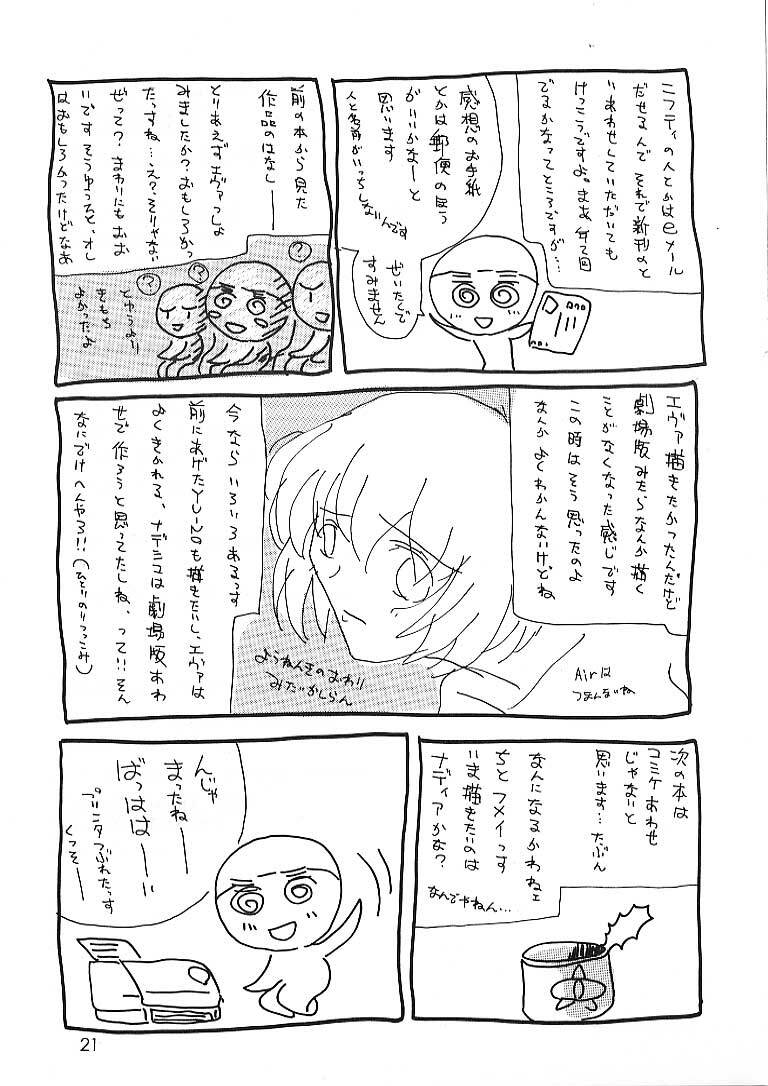 ニフティの人とかはeメール
だせるんで それで新刊のと
いあわせしていただいても
けっこうですよ。まあ 年で回
でるかなってところですが…
感想のお手紙
とかは郵便のほう
がいいかなーと
思います
人と名前がいっちしないんです
ぜいたくで
すみません
前の本から見た
作品のはなし――
とりあえずエヴァっしょ
みましたか?おもしろかっ
たっすね…え?そりゃない
ぜって?まわりにもむお
いです そうゆうひと、オレ
はおもしろかったけどなあ
?
?
?
とゆうより
きもち
よかったよ
エヴァ描きたかったんだけど
劇場版みたらなんか描く
ことがなくなった感じです
この時はそう思ったのよ
なんか よくわかんないけどね
今なら いろいろあるっす
前にあげたYU-NOも描きたいし、エヴァは
よくきかれる、ナデシコは劇場版あわ
せで作ろうと思ってたしね、って!!そん
なにでけへんやろ!!(ひとりのりつっこみ)
ようねんきのおわり
みたいかしらん
Airは
つまんないね
次の本は
コミケあわせ
じゃないと
思います…たぶん
なんになるかわねェ
ちとフメイっす
いま描きたいのは
ナディアかな?
なんでやねん…
んじゃ
まったねー
ばっはは――い
プリンタつぶれたっす
くっそ――
21